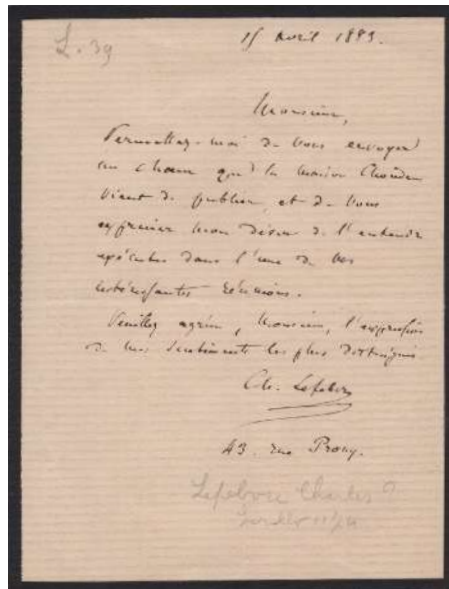 L. 39
15 Avril 1893.
Monsieur,
Permettez-moi de vous envoyer
un Chœur que la maison
vient de publier, et de vous
exprimer mon désir de l'entendre
exécuter dans l'une de vos
intéressantes réunions.
Veuillez agréer, Monsieur, l'expression
de mes sentiments les plus distingués
Ch. Lefebvre
43. rue Prony.
Lefebvre Charles